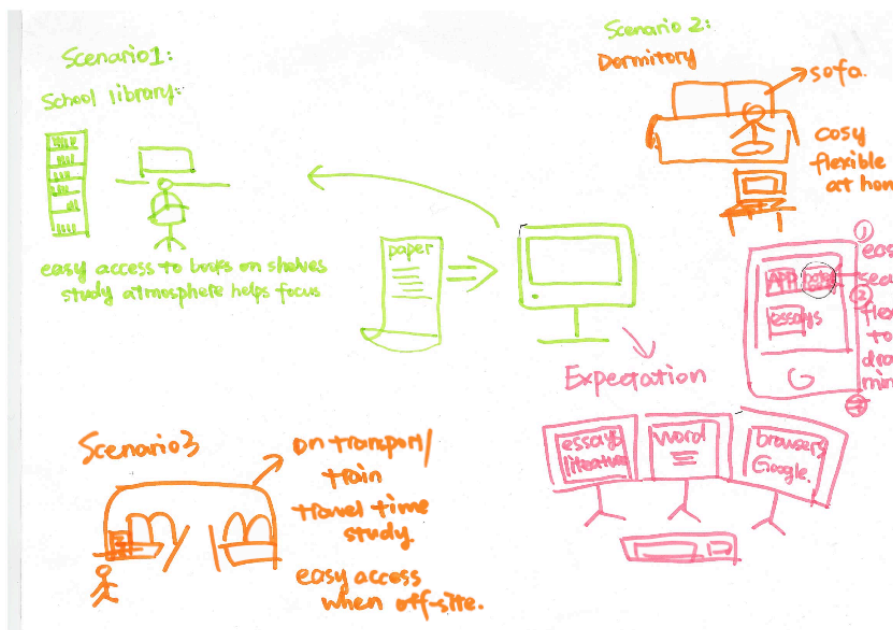 Scenario1:
School library:
easy access to books on shelves
study atmosphere helps focus
paper
Scenario 2:
Dormitory
sofa.
cosy
flexible
at hom
①
eas
sea
②
flex
to
dra
min
APP
essays
Expectation
essays
literature
word
browsers
Google.
Scenario3
on transport/
train
travel time
study.
easy access
when off-site.